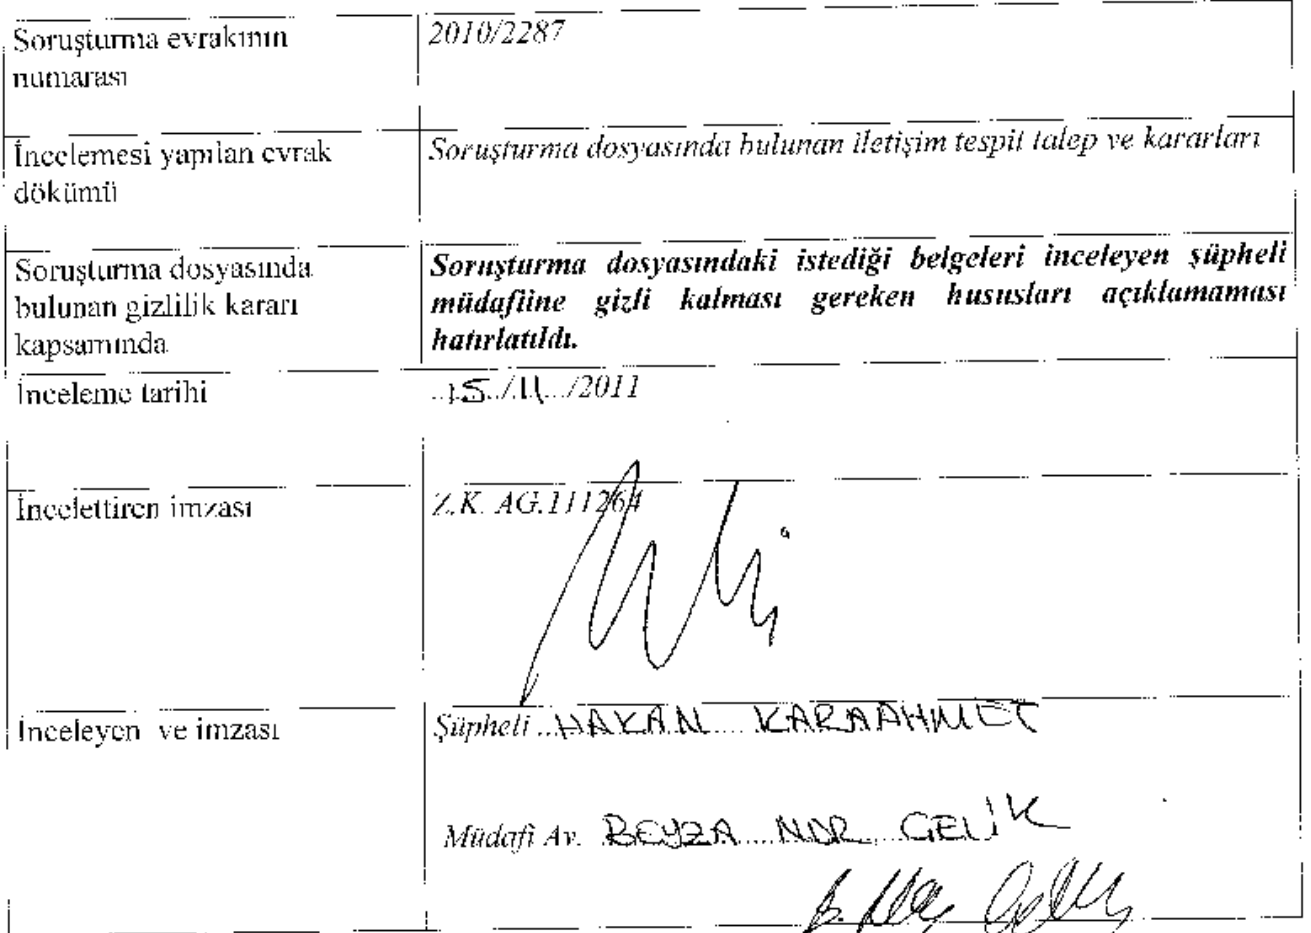 Soruşturma evrakının
numarası
2010/2287
İncelemesi yapılan evrak
dökümü
Soruşturma dosyasında bulunan iletişim tespit talep ve kararları
Soruşturma dosyasında
bulunan gizlilik kararı
kapsamında
Soruşturma dosyasındaki istediği belgeleri inceleyen şüpheli
müdafiine gizli kalması gereken hususları açıklamaması
hatırlatıldı.
İnceleme tarihi
..15../.11.../2011
İncelettiren imzası
Z.K. AG.111264
İnceleyen ve imzası
Şüpheli ..HAKAN.... KARAAHMET
Müdafi Av. BEYZA NUR GELİK